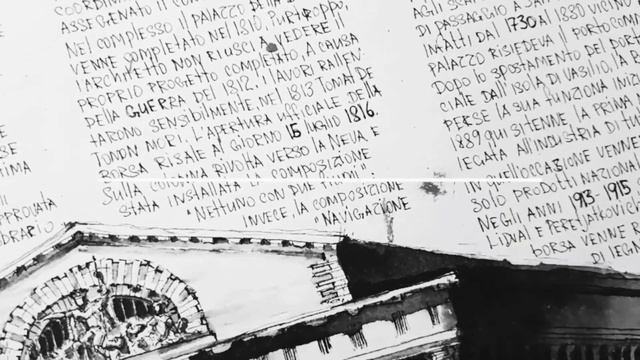 APPROVATA
ASSEGNATO IL
NEL COMPLESSO IL PALAZZO DELLA
VENNE COMPLETATO NEL 1810. PURTROPPO,
L'ARCHITETTO NON RIUSCÌ A VEDERE IL
PROPRIO PROGETTO COMPLETATO A CAUSA
DELLA GUERRA DEL 1812. I LAVORI RALLEN-
TARONO SENSIBILMENTE, NEL 1813 TOMAS DE
MORÌ. L'APERTURA UFFICIALE DELLA
BORSA RISALE AL GIORNO 15 LUGLIO 1816.
SULLA COLONNA RIVOLTA VERSO LA NEVA È
STATA INSTALLATA LA COMPOSIZIONE
"NETTUNO CON DUE
INVECE, LA COMPOSIZIONE
"NAVIGAZIONE
AGLI
DI PASSAGGIO A
INFATTI DAL 1730 AL 1830 VICINO
PALAZZO RISIEDEVA IL PORTO COM
DOPO LO SPOSTAMENTO DEL
CIALE DALL'ISOLA DI VASILIO, LA
PERSE LA SUA FUNZIONE
1889 QUI SI TENNE LA PRIMA
LEGATA ALL'INDUSTRIA DI
IN QUELL'OCCASIONE VENNE
SOLO PRODOTTI NAZION
NEGLI ANNI 1913-1915
LIDVAL E
BORSA VENNE
DI LEGA